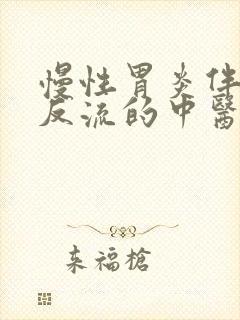 慢性胃炎伴
反流的中醫
来福槍